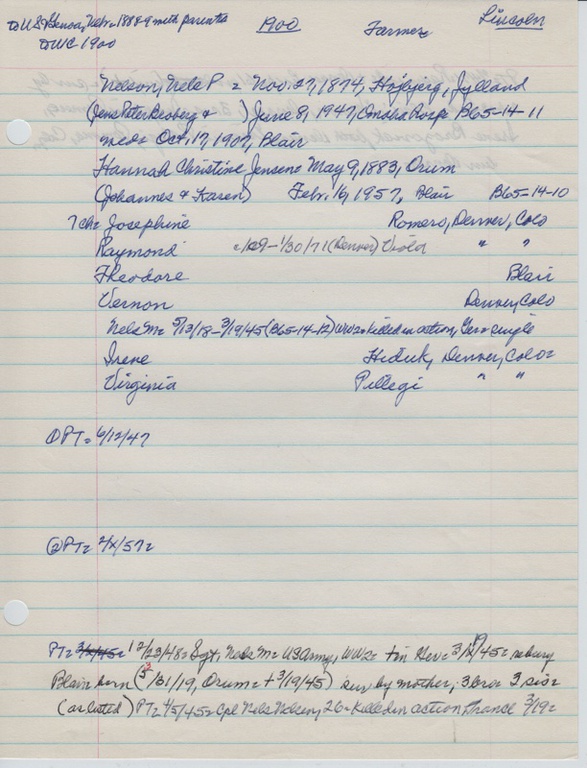 ① US, Genoa, Nebr. 1888-9 with parents 1900 Farmer Lincoln
② WC 1900
Nelson, Nels P = Nov. 27, 1874, Hojbjerg, Jylland
(Jens Peter & ) June 8, 1947, Omaha B65-14-11
med = Oct. 17, 1907, Blair
Hannah Christine Jensen = May 9, 1883, Orum
(Johannes & Karen) Febr. 16, 1957, Blair B65-14-10
7 ch = Josephine Romero, Denver, Colo
Raymond - 1/30/71 (Denver) Viola " "
Theodore Blair
Vernon Denver, Colo
Nels M = 5/13/18 - 3/19/45 (B65-14-12) WW2 = killed in action, Ger = single
Irene Hiduk, Denver, Colo =
Virginia Pillegi " "
① PT = 6/12/47
② PT = 2/x/57 =
PT = 3/x/45 = 12/23/48 = Sgt. Nels M = US Army, WW2 = + in Ger = 3/19/45 = rebury
Blair = born (5/31/19, Orum = + 3/19/45) sur by mother, 3 bro 3 sis =
(as listed) PT = 4/5/45 = Cpl Nels Nelson, 26 = killed in action, France 3/19 =